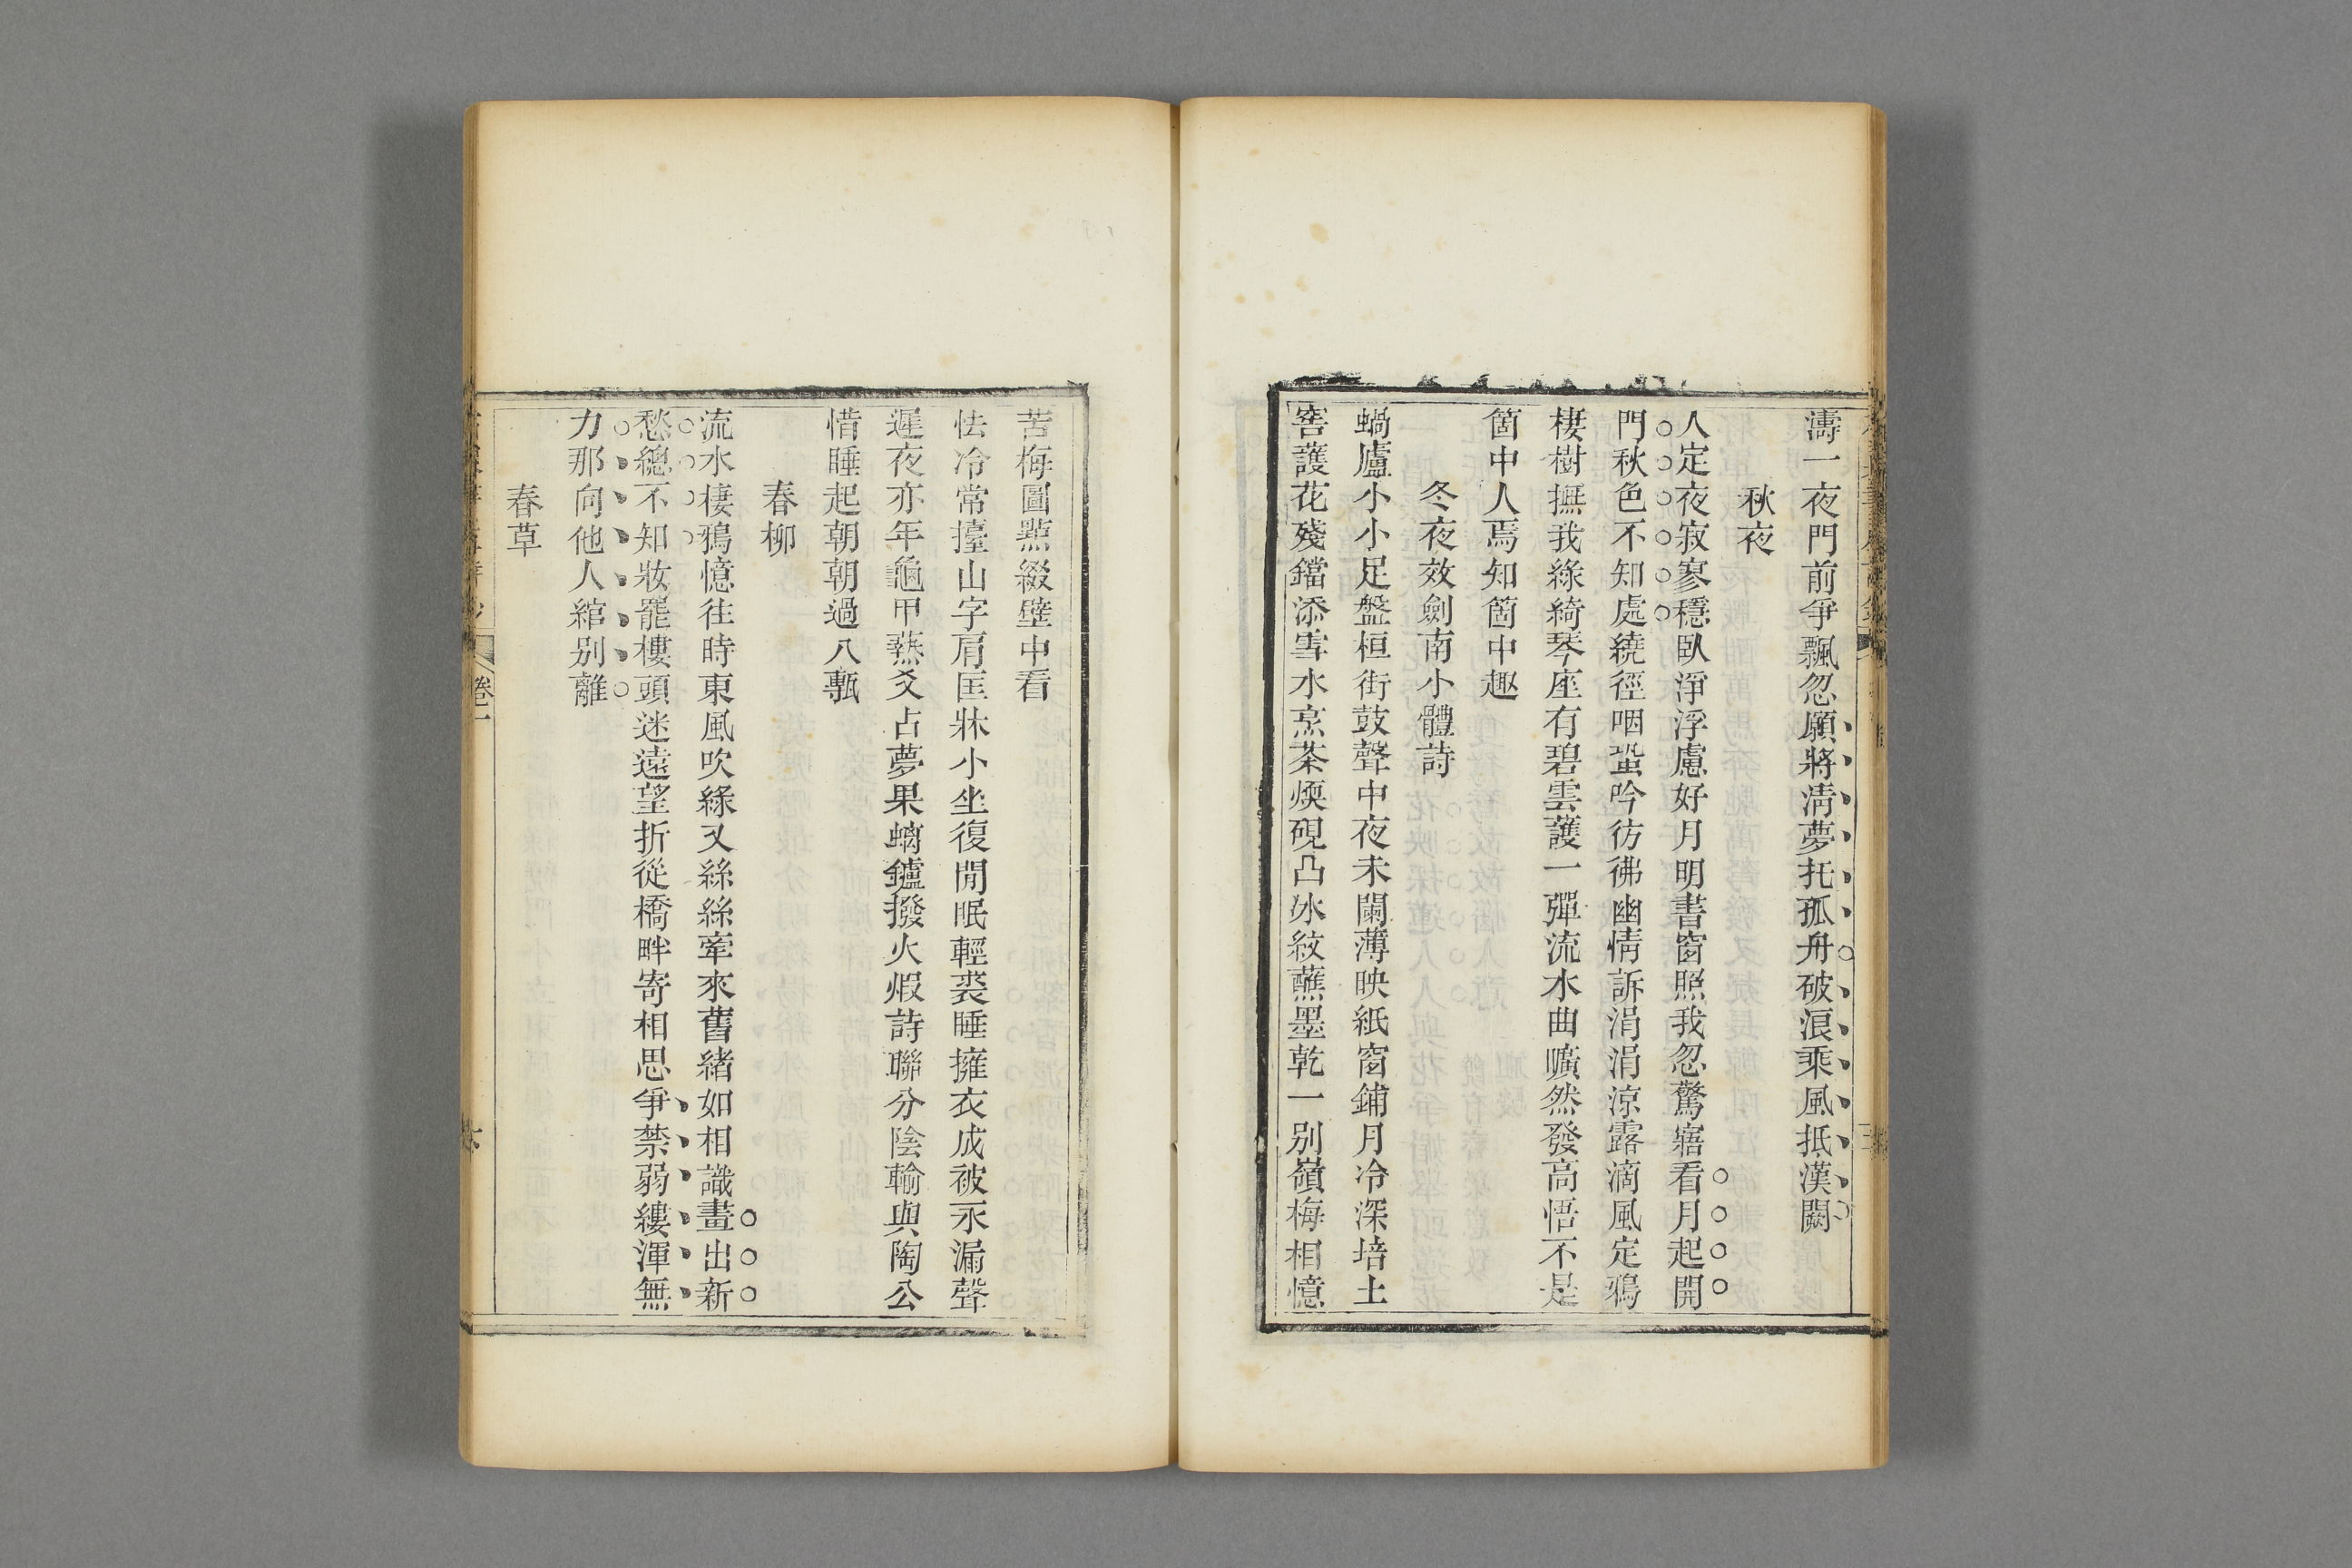 濤一夜門前爭飄忽願將淸夢托孤舟破浪乘風抵漢闕
秋夜
人定夜寂寥穩臥淨浮慮好月明書窗照我忽驚寤看月起開
門秋色不知處繞徑咽蛩吟彷彿幽情訴涓涓涼露滴風定鴉
棲樹撫我綠綺琴座有碧雲護一彈流水曲曠然發高悟不是
箇中人焉知箇中趣
冬夜效劍南小體詩
蝸廬小小足盤桓街鼓聲中夜未闌薄映紙窗鋪月冷深培土
窖護花殘鐺添雪水烹茶煗硯凸冰紋蘸墨乾一別嶺梅相憶
苦梅圖㸃綴壁中看
怯冷常擡山字肩匡牀小坐復閒眠輕裘睡擁衣成被永漏聲
遲夜亦年龜甲爇爻占夢果螭鑪撥火煆詩聯分陰輸與陶公
惜睡起朝朝過八甎
春柳
流水棲鴉憶往時東風吹綠又絲絲牽來舊緒如相識畫出新
愁總不知妝罷樓頭迷遠望折從橋畔寄相思爭禁弱縷渾無
力那向他人綰別離
春草
卷一
六